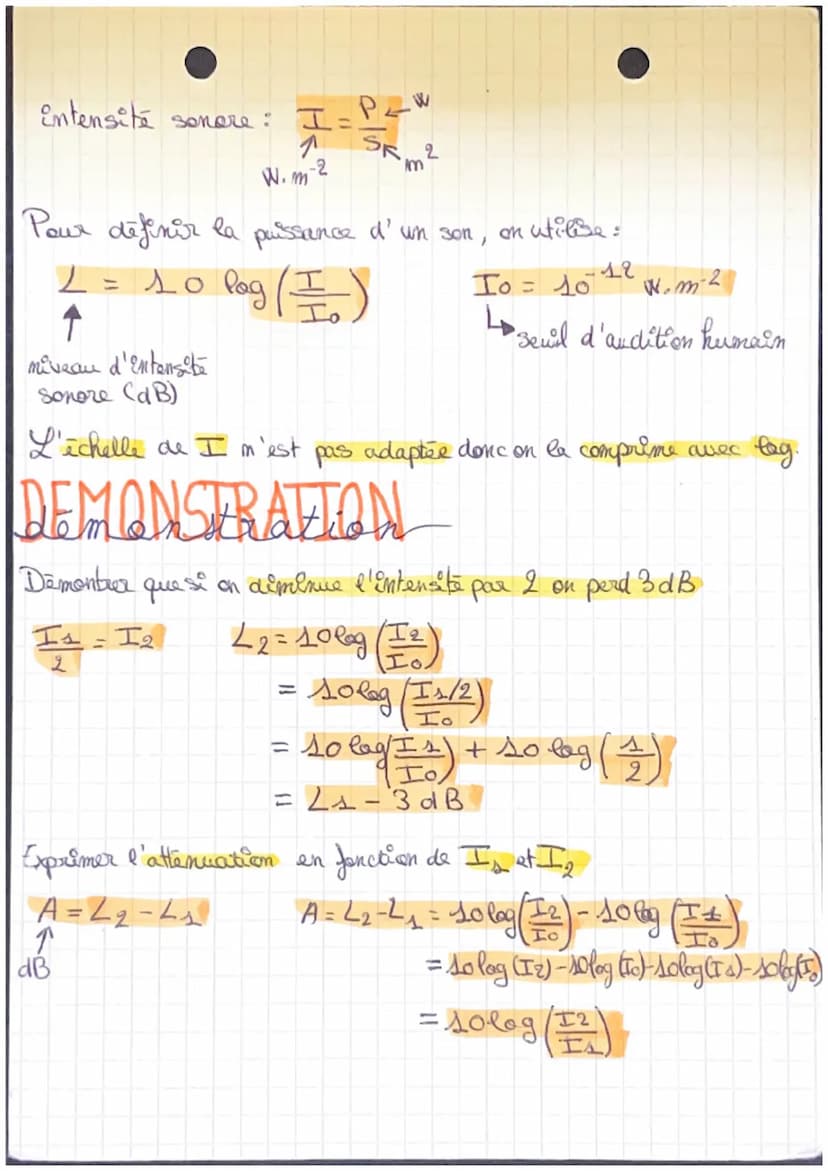 intensité sonore : I = P/S
W
m²
W.m⁻²
Pour définir la puissance d'un son, on utilise :
L = 10 log(I/I₀)
I₀ = 10⁻¹² W.m⁻²
seuil d'audition humain
niveau d'intensité
sonore (dB)
L'échelle de I n'est pas adaptée donc on la comprime avec log.
DEMONSTRATION
démonstration
Démontrer que si on diminue l'intensité par 2 on perd 3 dB
I₁/2 = I₂
L₂ = 10 log(I₂/I₀)
= 10 log((I₁/2)/I₀)
= 10 log(I₁/I₀) + 10 log(1/2)
= L₁ - 3 dB
Exprimer l'atténuation en fonction de I₁ et I₂
A = L₂ - L₁
dB
A = L₂ - L₁ = 10 log(I₂/I₀) - 10 log(I₁/I₀)
= 10 log(I₂) - 10 log(I₀) - 10 log(I₁) - 10 log(I₀)
= 10 log(I₂/I₁)